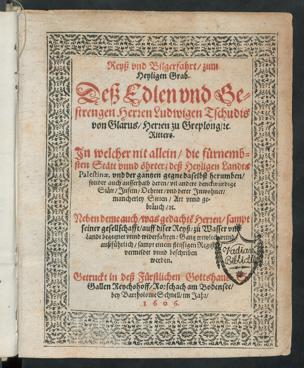 Reyß vnd Bilgerfahrt / zum
Heyligen Grab.
Deß Edlen vnd Ge-
strengen Herren Ludwigen Tschudis
von Glarus / Herren zu Greplong / ꝛc.
Ritters.
In welcher nit allein / die fürnemb-
sten Stätt vnnd öhrter / deß Heyligen Landes
Palestinæ, vnd der gantzen gegne daselbst herumben /
sonder auch ausserhalb deren / vil andere denckwürdige
Stätt / Inseln / Oehrter / vnd derer Innwohner /
mancherley Sitten / Art vnnd ge-
bräuch / ꝛc.
Neben deme auch / was gedachte Herren / sampt
seiner gesellschafft / auff diser Reyß / zu Wasser vnd
außführlich / sampt einem
vermeldet vnnd beschriben
werden.
Getruckt in deß Fürstlichen Gottshauß
Gallen Reychshoff / Roschach am Bodensee /
bey Bartholome Schnell / im Jahr /
1606.
Vadian
Biblioth